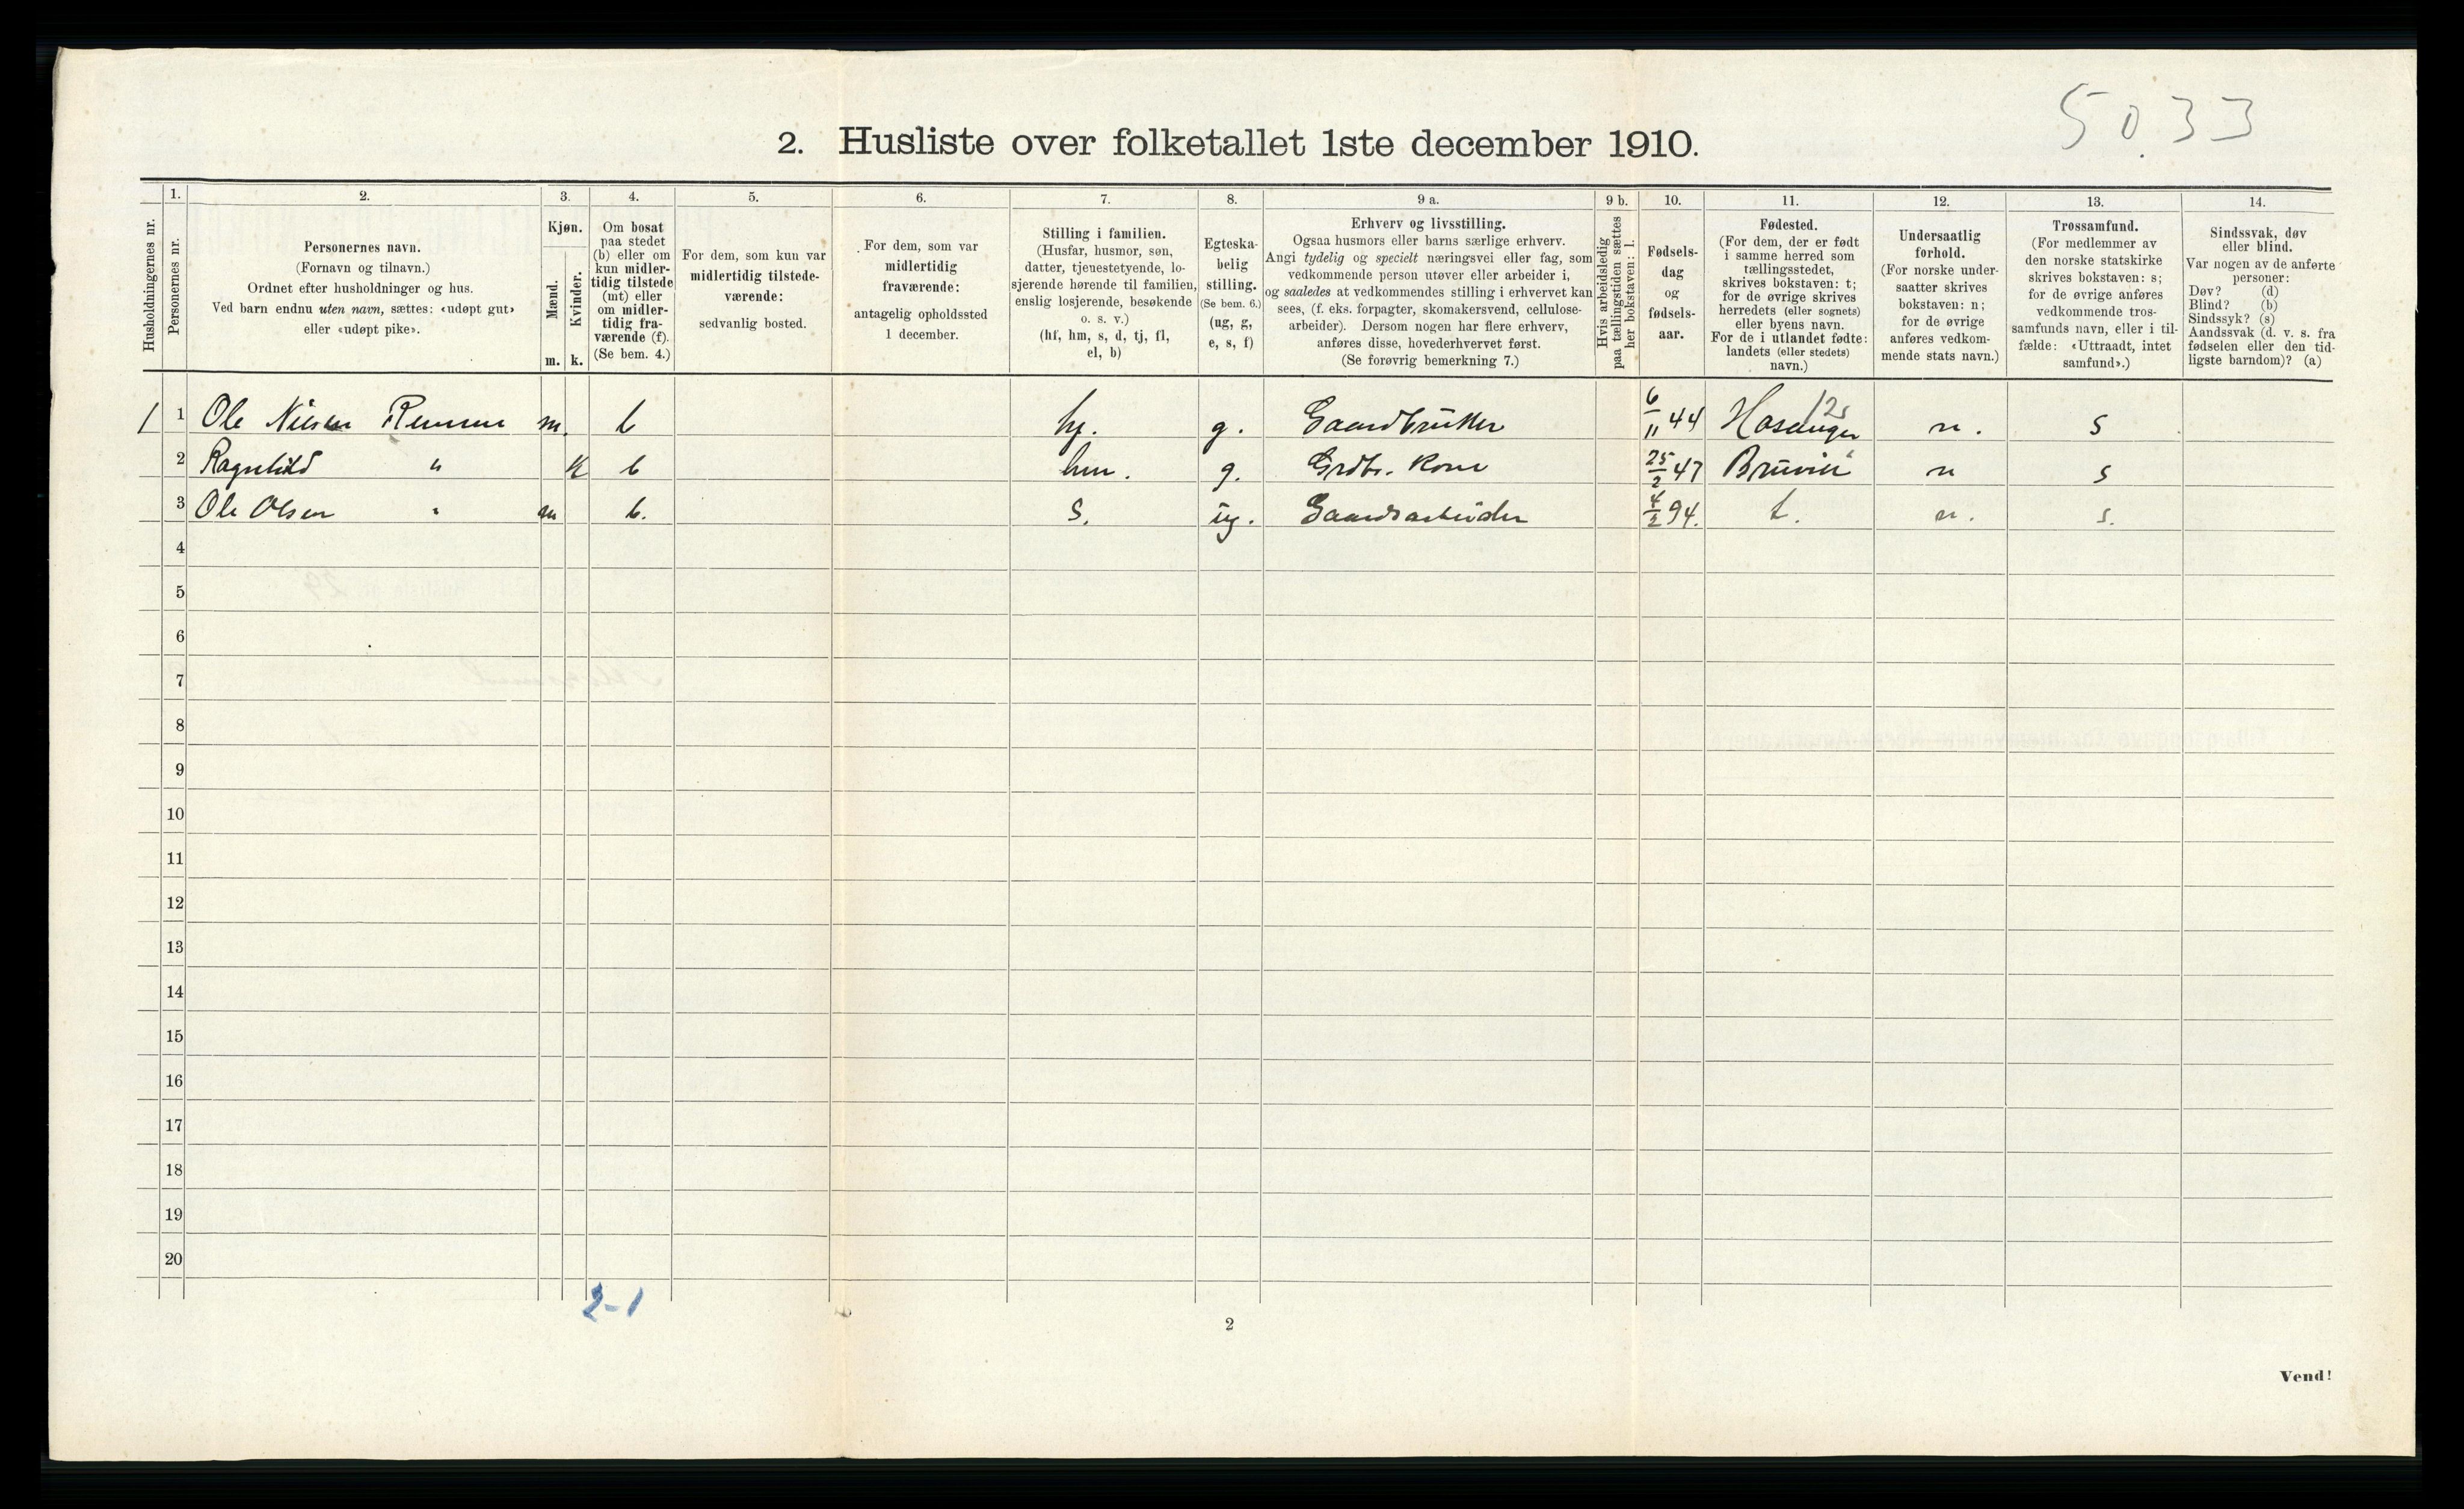 5033
2. Husliste over folketallet 1ste december 1910.
Husholdningernes nr.
1.
Personernes nr.
2.
Personernes navn.
(Fornavn og tilnavn.)
Ordnet efter husholdninger og hus.
Ved barn endnu uten navn, sættes: «udøpt gut»
eller «udøpt pike».
3.
Kjøn.
Mænd.
m.
Kvinder.
k.
4.
Om bosat
paa stedet
(b) eller om
kun midler-
tidig tilstede
(mt) eller
om midler-
tidig fra-
værende (f).
(Se bem. 4.)
5.
For dem, som kun var
midlertidig tilstede-
værende:
sedvanlig bosted.
6.
For dem, som var
midlertidig
fraværende:
antagelig opholdssted
1 december.
7.
Stilling i familien.
(Husfar, husmor, søn,
datter, tjenestetyende, lo-
sjerende hørende til familien,
enslig losjerende, besøkende
o. s. v.)
(hf, hm, s, d, tj, fl,
el, b)
8.
Egteska-
belig
stilling.
(Se bem. 6.)
(ug, g,
e, s, f)
9 a.
Erhverv og livsstilling.
Ogsaa husmors eller barns særlige erhverv.
Angi tydelig og specielt næringsvei eller fag, som
vedkommende person utøver eller arbeider i,
og saaledes at vedkommendes stilling i erhvervet kan
sees, (f. eks. forpagter, skomakersvend, cellulose-
arbeider). Dersom nogen har flere erhverv,
anføres disse, hovederhvervet først.
(Se forøvrig bemerkning 7.)
9 b.
Hvis arbeidsledig
paa tællingstiden sættes
her bokstaven: l.
10.
Fødsels-
dag
og
fødsels-
aar.
11.
Fødested.
(For dem, der er født
i samme herred som
tællingsstedet,
skrives bokstaven: t;
for de øvrige skrives
herredets (eller sognets)
eller byens navn.
For de i utlandet fødte:
landets (eller stedets)
navn.)
12.
Undersaatlig
forhold.
(For norske under-
saatter skrives
bokstaven: n;
for de øvrige
anføres vedkom-
mende stats navn.)
13.
Trossamfund.
(For medlemmer av
den norske statskirke
skrives bokstaven: s;
for de øvrige anføres
vedkommende tros-
samfunds navn, eller i til-
fælde: «Uttraadt, intet
samfund».)
14.
Sindssvak, døv
eller blind.
Var nogen av de anførte
personer:
Døv? (d)
Blind? (b)
Sindssyk? (s)
Aandssvak (d. v. s. fra
fødselen eller den tid-
ligste barndom)? (a)
1 1 Ole Nilsen m. b hf. g. Gaardbruker 6/11 44 n. s
2 Ragnhild " k b hm. g. Grdbr. kone 25/2 47 Bruvik n s
3 Ole Olsen " m b. s. ug. Gaardsarbeider 4/2 94. t. n. s.
4
5
6
7
8
9
10
11
12
13
14
15
16
17
18
19
20
2-1
2
Vend!